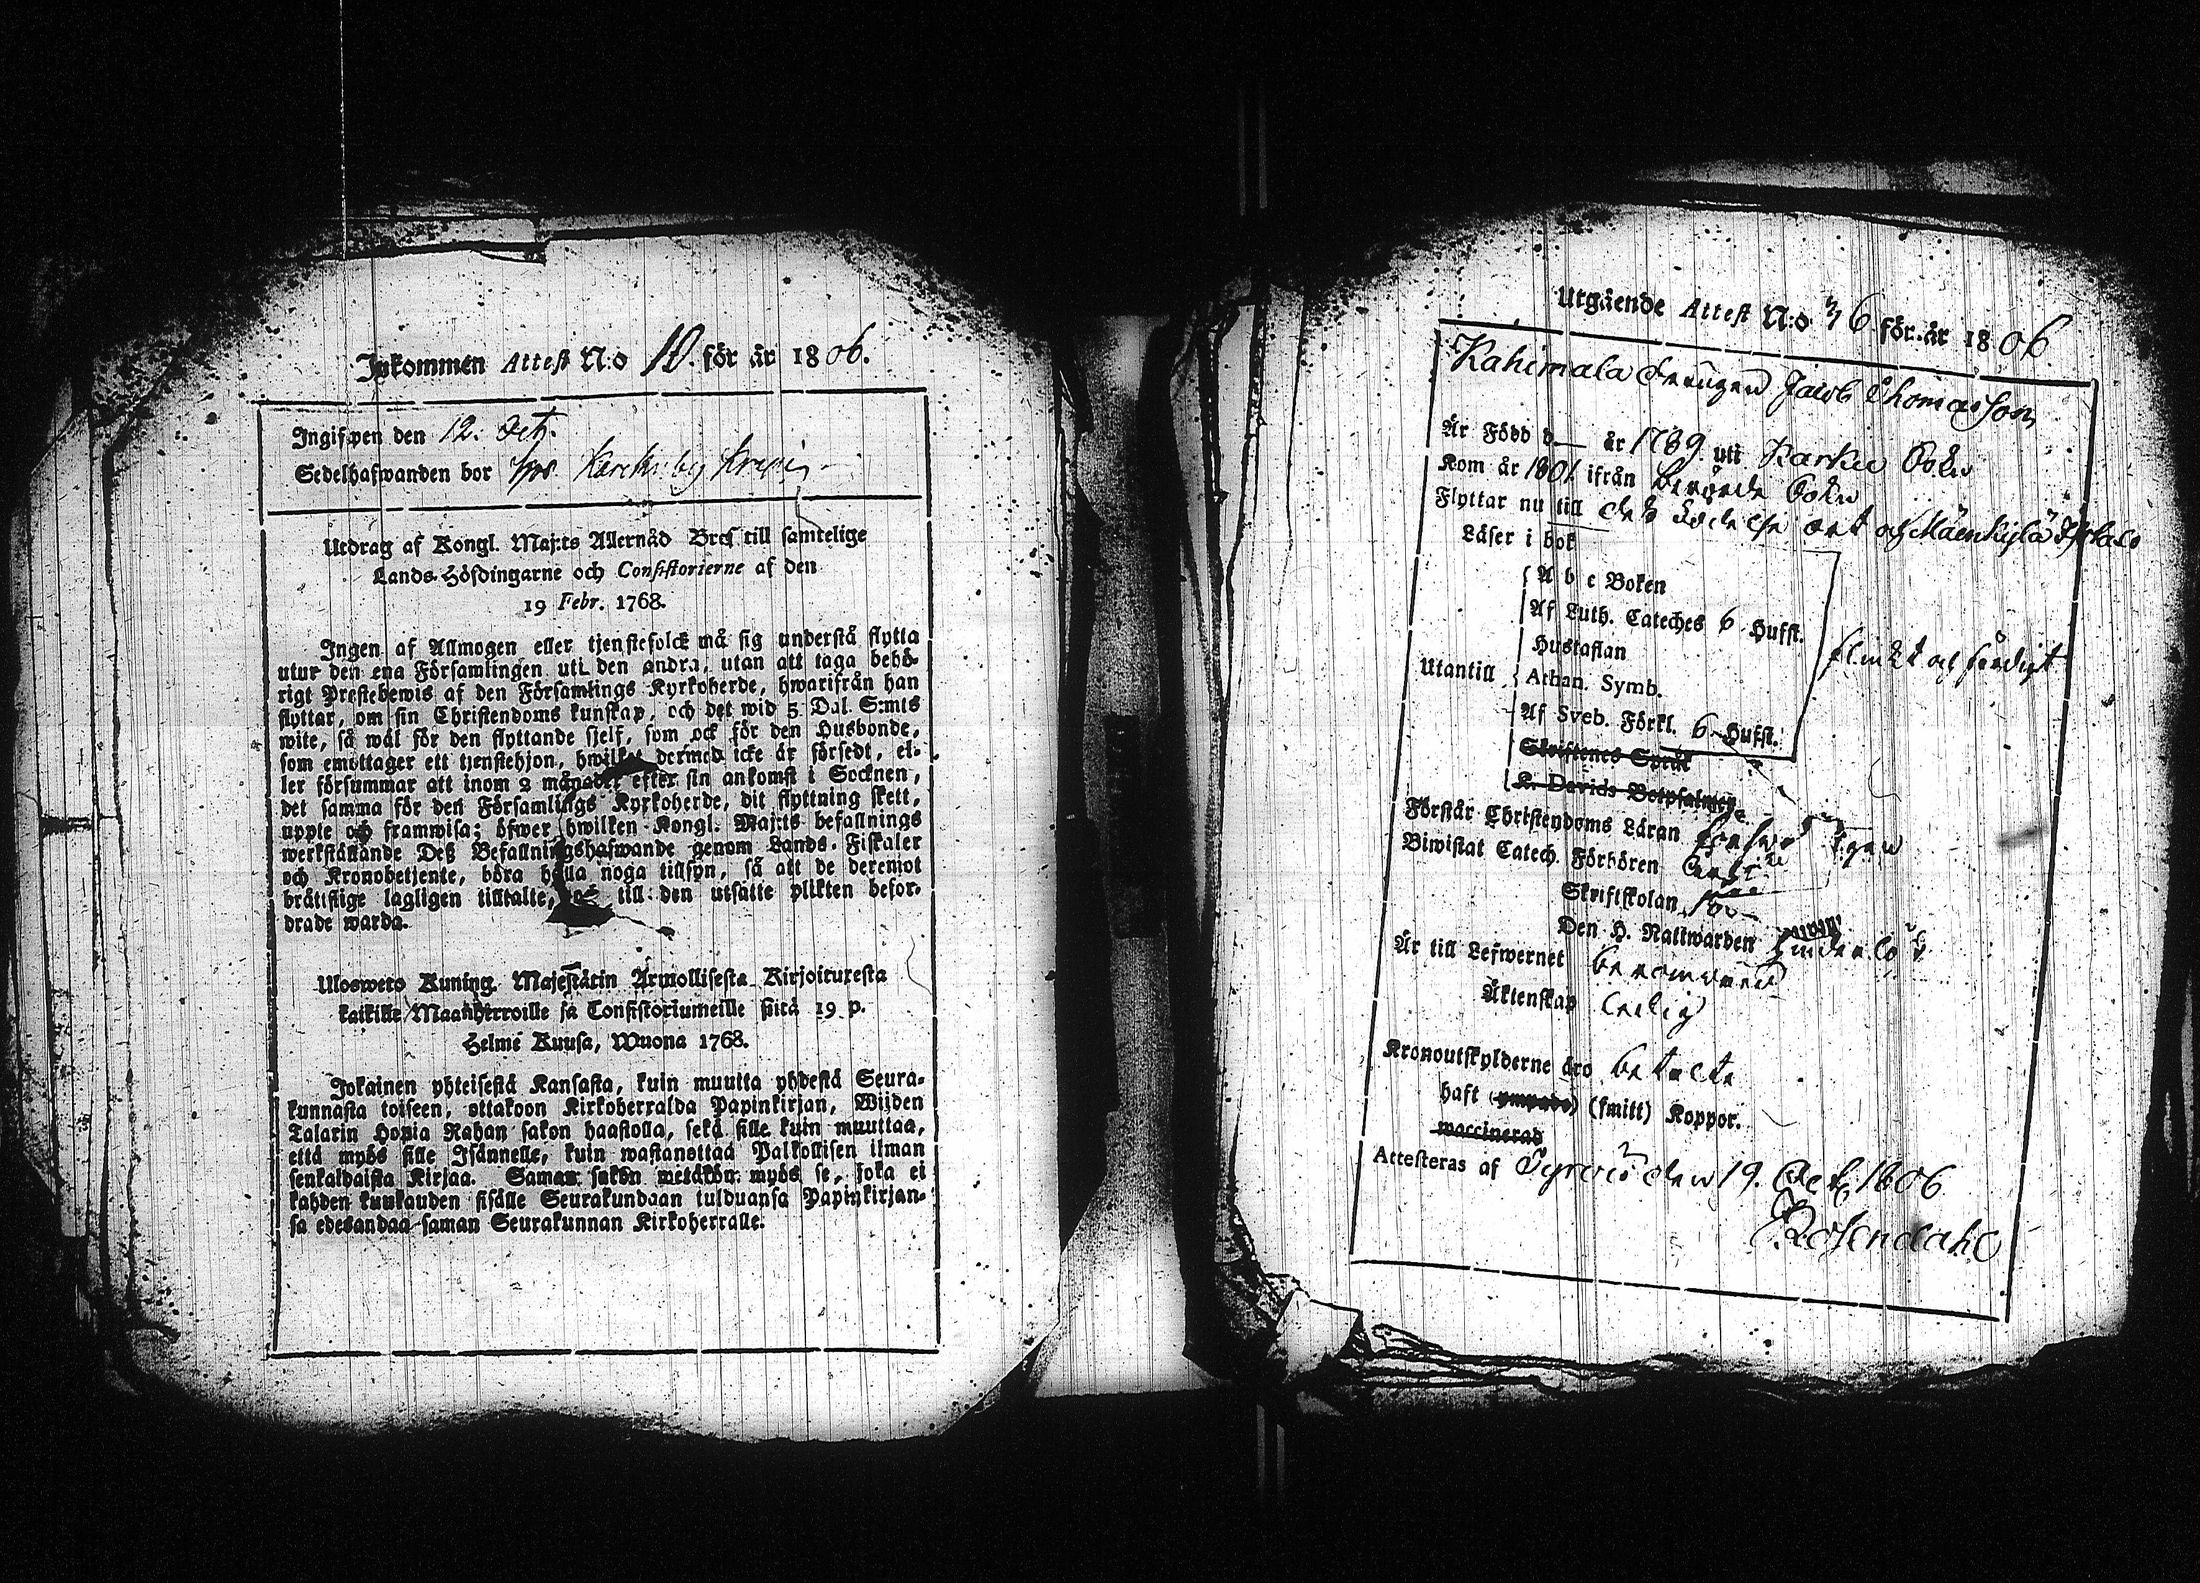 Inkommen Attest N:o 10. för år 1806.
Ingifwen den 12. Octb.
Sedelhafwanden bor hos
Utdrag af Kongl. Maj:ts Allernåd Bref till samtelige
Lands-Höfdingarne och Consistorierne af den
19 Febr. 1768.
Ingen af Allmogen eller tjenstefolck må sig understå flytta
utur den ena Församlingen uti den andra, utan att taga behö-
rigt Prestebewis af den Församlings Kyrkoherde, hwarifrån han
flyttar, om sin Christendoms kunskap, och det wid 5 Dal. S:mts
wite, så wäl för den flyttande sjelf, som ock för den Husbonde,
som emottager ett tjenstehjon, hwilket dermed icke är försedt, el-
ler försummar att inom 2 månader efter sin ankomst i Socknen,
det samma för den Församlings Kyrkoherde, dit flyttning skett,
uppte och framwisa; öfwer hwilken Kongl. Maj:ts befallnings
werkställande Deß Befallningshafwande genom Lands-Fiskaler
och Kronobetjente, böra hålla noga tillsyn, så att de deremot
bråtistige lagligen tilltalte, och till den utsatte plikten befor-
drade warda.
Ulosweto Kuning. Majestätin Armollisesta Kirjoituxesta
kaikille Maanherroille ja Consistoriumeille siitä 19 p.
Helme Kuusa, Wuona 1768.
Jokainen yhteisestä Kansasta, kuin muutta yhdestä Seura-
kunnasta toiseen, ottakoon Kirkoherralda Papinkirjan, Wijden
Talarin Hopia Rahan sakon haastolla, sekä sille kuin muuttaa,
että myös sille Isännelle, kuin wastanottaa Palkollisen ilman
senkaldaista Kirjaa. Saman sakon wetäkön myös se, joka ei
kahden kuukauden sisälle Seurakundaan tulduansa Papinkirjan-
sa edesandaa saman Seurakunnan Kirkoherralle.
Utgående Attest N:o 36 för år 1806
Kahimala drengen Jacob Thomasson
Är Född d. år 1789 uti Karku Sokn
Kom år 1801 ifrån berörde Sokn
Flyttar nu till dess födelse ort och
Läser i bok
A b c Boken
Af Luth. Cateches 6 Hufst.
Hustaflan
flinkt och färdigt
Utantill
Athan. Symb.
Af Sveb. Förkl. 6 Hufst.
Skriftenes Språk
K. Davids Botpsalmer
Förstår Christendoms Läran
Biwistat Catech. Förhören
Skriftskolan
Den H. Nattwarden
Är till Lefwernet berömwärd
Äktenskap ledig
Kronoutskylderne äro betalte
haft (ympade) (smitt) Koppor.
waccinerad
Attesteras af Tyrvis den 19. Octb 1806
Rosendahl